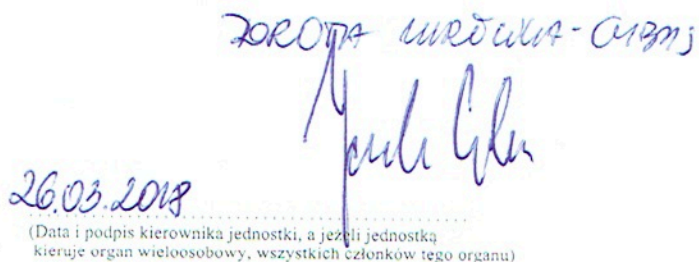 DOROTA
26.03.2018
(Data i podpis kierownika jednostki, a jeżeli jednostką
kieruje organ wieloosobowy, wszystkich członków tego organu)